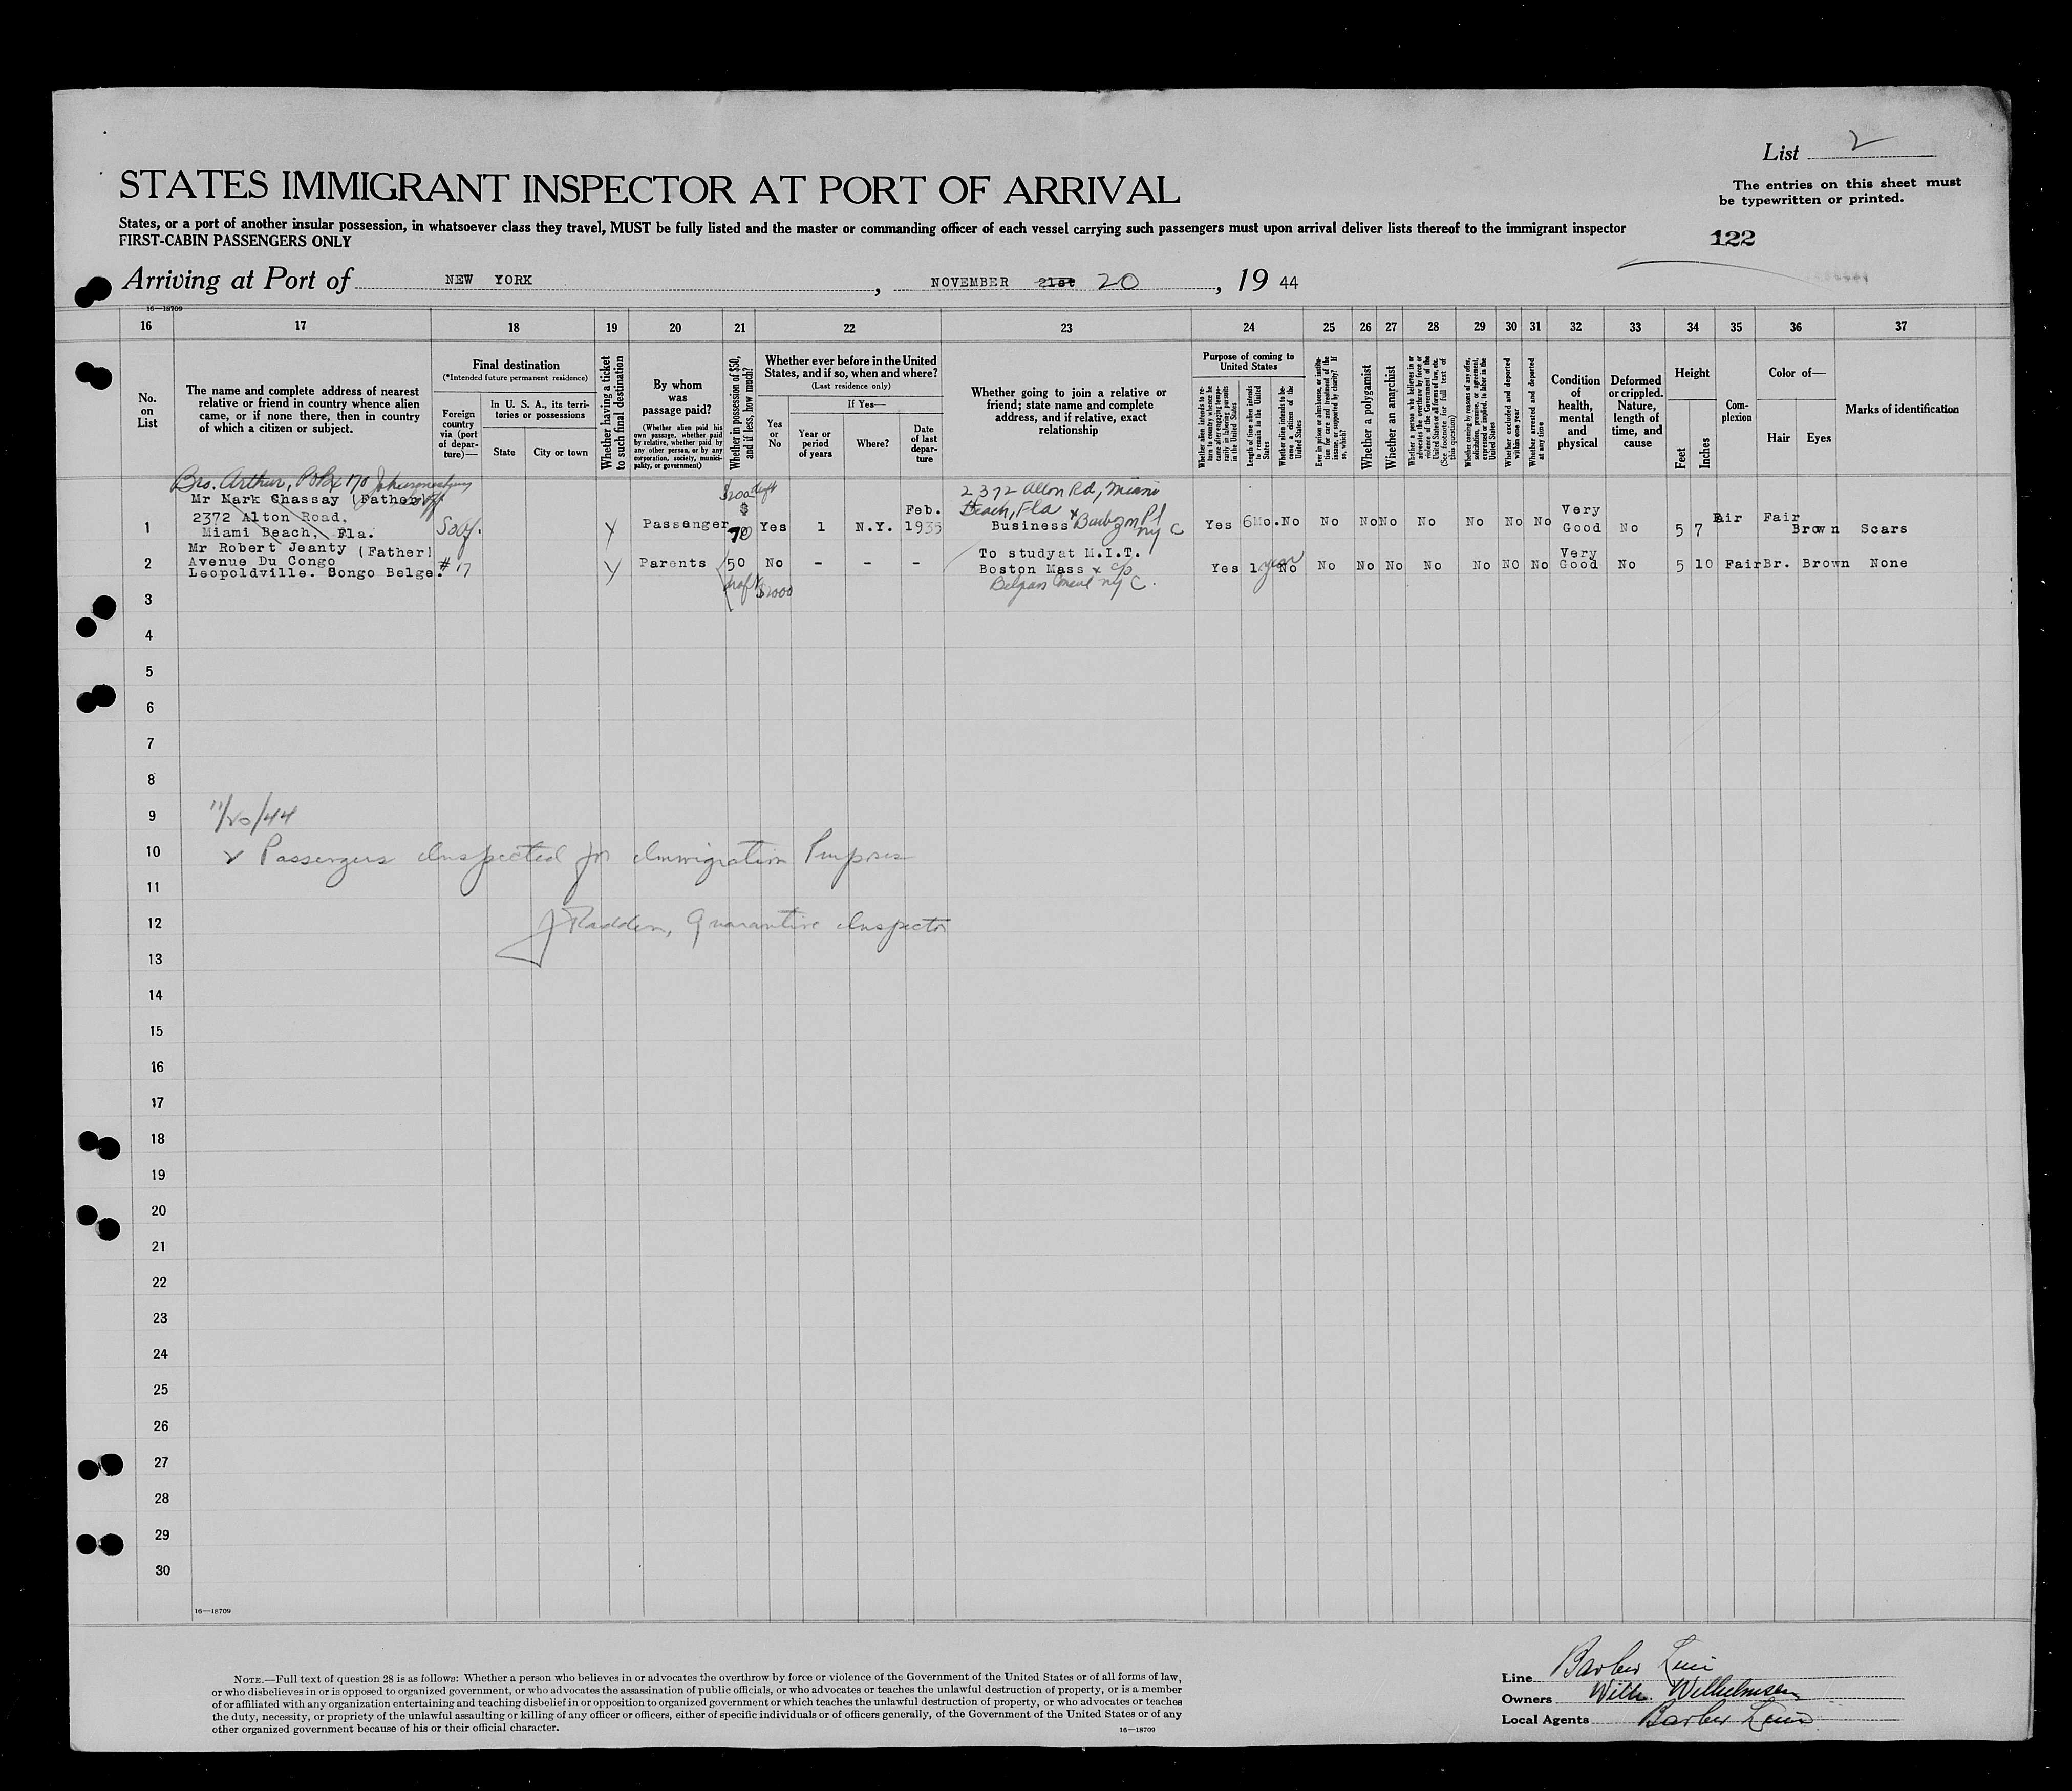 List 2
STATES IMMIGRANT INSPECTOR AT PORT OF ARRIVAL
The entries on this sheet must
be typewritten or printed.
States, or a port of another insular possession, in whatsoever class they travel, MUST be fully listed and the master or commanding officer of each vessel carrying such passengers must upon arrival deliver lists thereof to the immigrant inspector
FIRST-CABIN PASSENGERS ONLY
122
Arriving at Port of NEW YORK, NOVEMBER 21st 20, 19 44
16—18709
16 17 18 19 20 21 22 23 24 25 26 27 28 29 30 31 32 33 34 35 36 37
No. on List
The name and complete address of nearest
relative or friend in country whence alien
came, or if none there, then in country
of which a citizen or subject.
Final destination
(*Intended future permanent residence)
Foreign country via (port of departure)—
In U. S. A., its territories or possessions
State
City or town
Whether having a ticket to such final destination
By whom was passage paid?
(Whether alien paid his own passage, whether paid by relative, whether paid by any other person, or by any corporation, society, municipality, or government)
Whether in possession of $50, and if less, how much?
Whether ever before in the United States, and if so, when and where?
(Last residence only)
Yes or No
If Yes—
Year or period of years
Where?
Date of last departure
Whether going to join a relative or
friend; state name and complete
address, and if relative, exact
relationship
Purpose of coming to United States
Whether alien intends to return to country whence he came after engaging temporarily in laboring pursuits in the United States
Length of time alien intends to remain in the United States
Whether alien intends to become a citizen of the United States
Ever in prison or almshouse, or institution for care and treatment of the insane, or supported by charity? If so, which?
Whether a polygamist
Whether an anarchist
Whether a person who believes in or advocates the overthrow by force or violence of the Government of the United States or all forms of law, etc. (See footnote for full text of this question)
Whether coming by reasons of any offer, solicitation, promise, or agreement, expressed or implied, to labor in the United States
Whether excluded and deported within one year
Whether arrested and deported at any time
Condition of health, mental and physical
Deformed or crippled. Nature, length of time, and cause
Height
Feet
Inches
Complexion
Color of—
Hair
Eyes
Marks of identification
Bro. Arthur, POBx 170
Mr Mark Chassay (Father)
2372 Alton Road,
Miami Beach, Fla.
1 Y Passenger $200 $ 70 Yes 1 N.Y. Feb. 1935
2372 Alton Rd, Miami
Beach, Fla
Business NYC
Yes 6Mo. No No No No No No No No Very Good No 5 7 Fair Fair Brown Scars
Mr Robert Jeanty (Father)
Avenue Du Congo
Leopoldville. Congo Belge.
2 #17 Y Parents 50 No - - -
draft $2000
To study at M.I.T.
Boston Mass c/o
Belgian Consul NYC.
Yes 1 year No No No No No No NO No Very Good No 5 10 Fair Br. Brown None
3
4
5
6
7
8
9
11/20/44
10
2 Passengers Inspected for Immigration Purposes
11
12
J Radden, Quarantine Inspector
13
14
15
16
17
18
19
20
21
22
23
24
25
26
27
28
29
30
16—18709
NOTE.—Full text of question 28 is as follows: Whether a person who believes in or advocates the overthrow by force or violence of the Government of the United States or of all forms of law,
or who disbelieves in or is opposed to organized government, or who advocates the assassination of public officials, or who advocates or teaches the unlawful destruction of property, or is a member
of or affiliated with any organization entertaining and teaching disbelief in or opposition to organized government or which teaches the unlawful destruction of property, or who advocates or teaches
the duty, necessity, or propriety of the unlawful assaulting or killing of any officer or officers, either of specific individuals or of officers generally, of the Government of the United States or of any
other organized government because of his or their official character.
16—18709
Line Barber Line
Owners Wilh. Wilhelmsen
Local Agents Barber Line